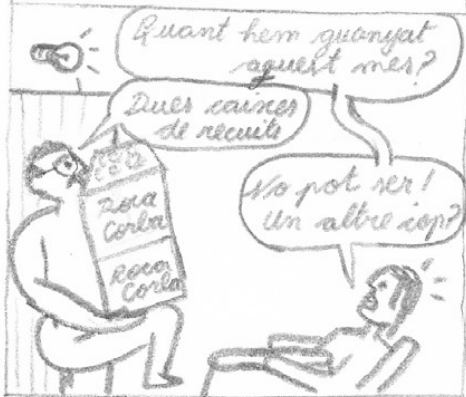 Quant hem guanyat
aquest mes?
Dues caixes
de recuits
No pot ser!
Un altre cop?
Roca
Corba
Roca
Corba